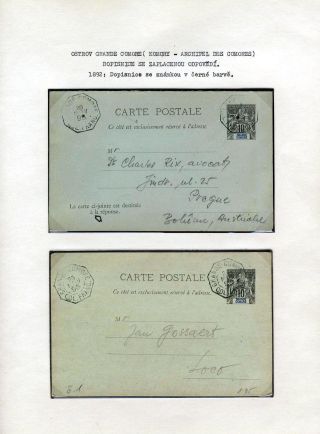 OSTROV GRANDE COMORE( KOMORY - ARCHIPEL DES COMORES)
DOPISNICE SE ZAPLACENOU ODPOVĚDÍ.
1892: Dopisnice se známkou v černé barvě.
CARTE POSTALE
Ce côté est exclusivement réservé à l'adresse.
10
Mr
Dr Charles Rix, avocat,
Jindr. ul. 25
Prague
La carte ci-jointe est destinée
à la réponse.
Bohême, Australie
CARTE POSTALE
Ce côté est exclusivement réservé à l'adresse.
10
Mr
Jan Gossaert
Loco